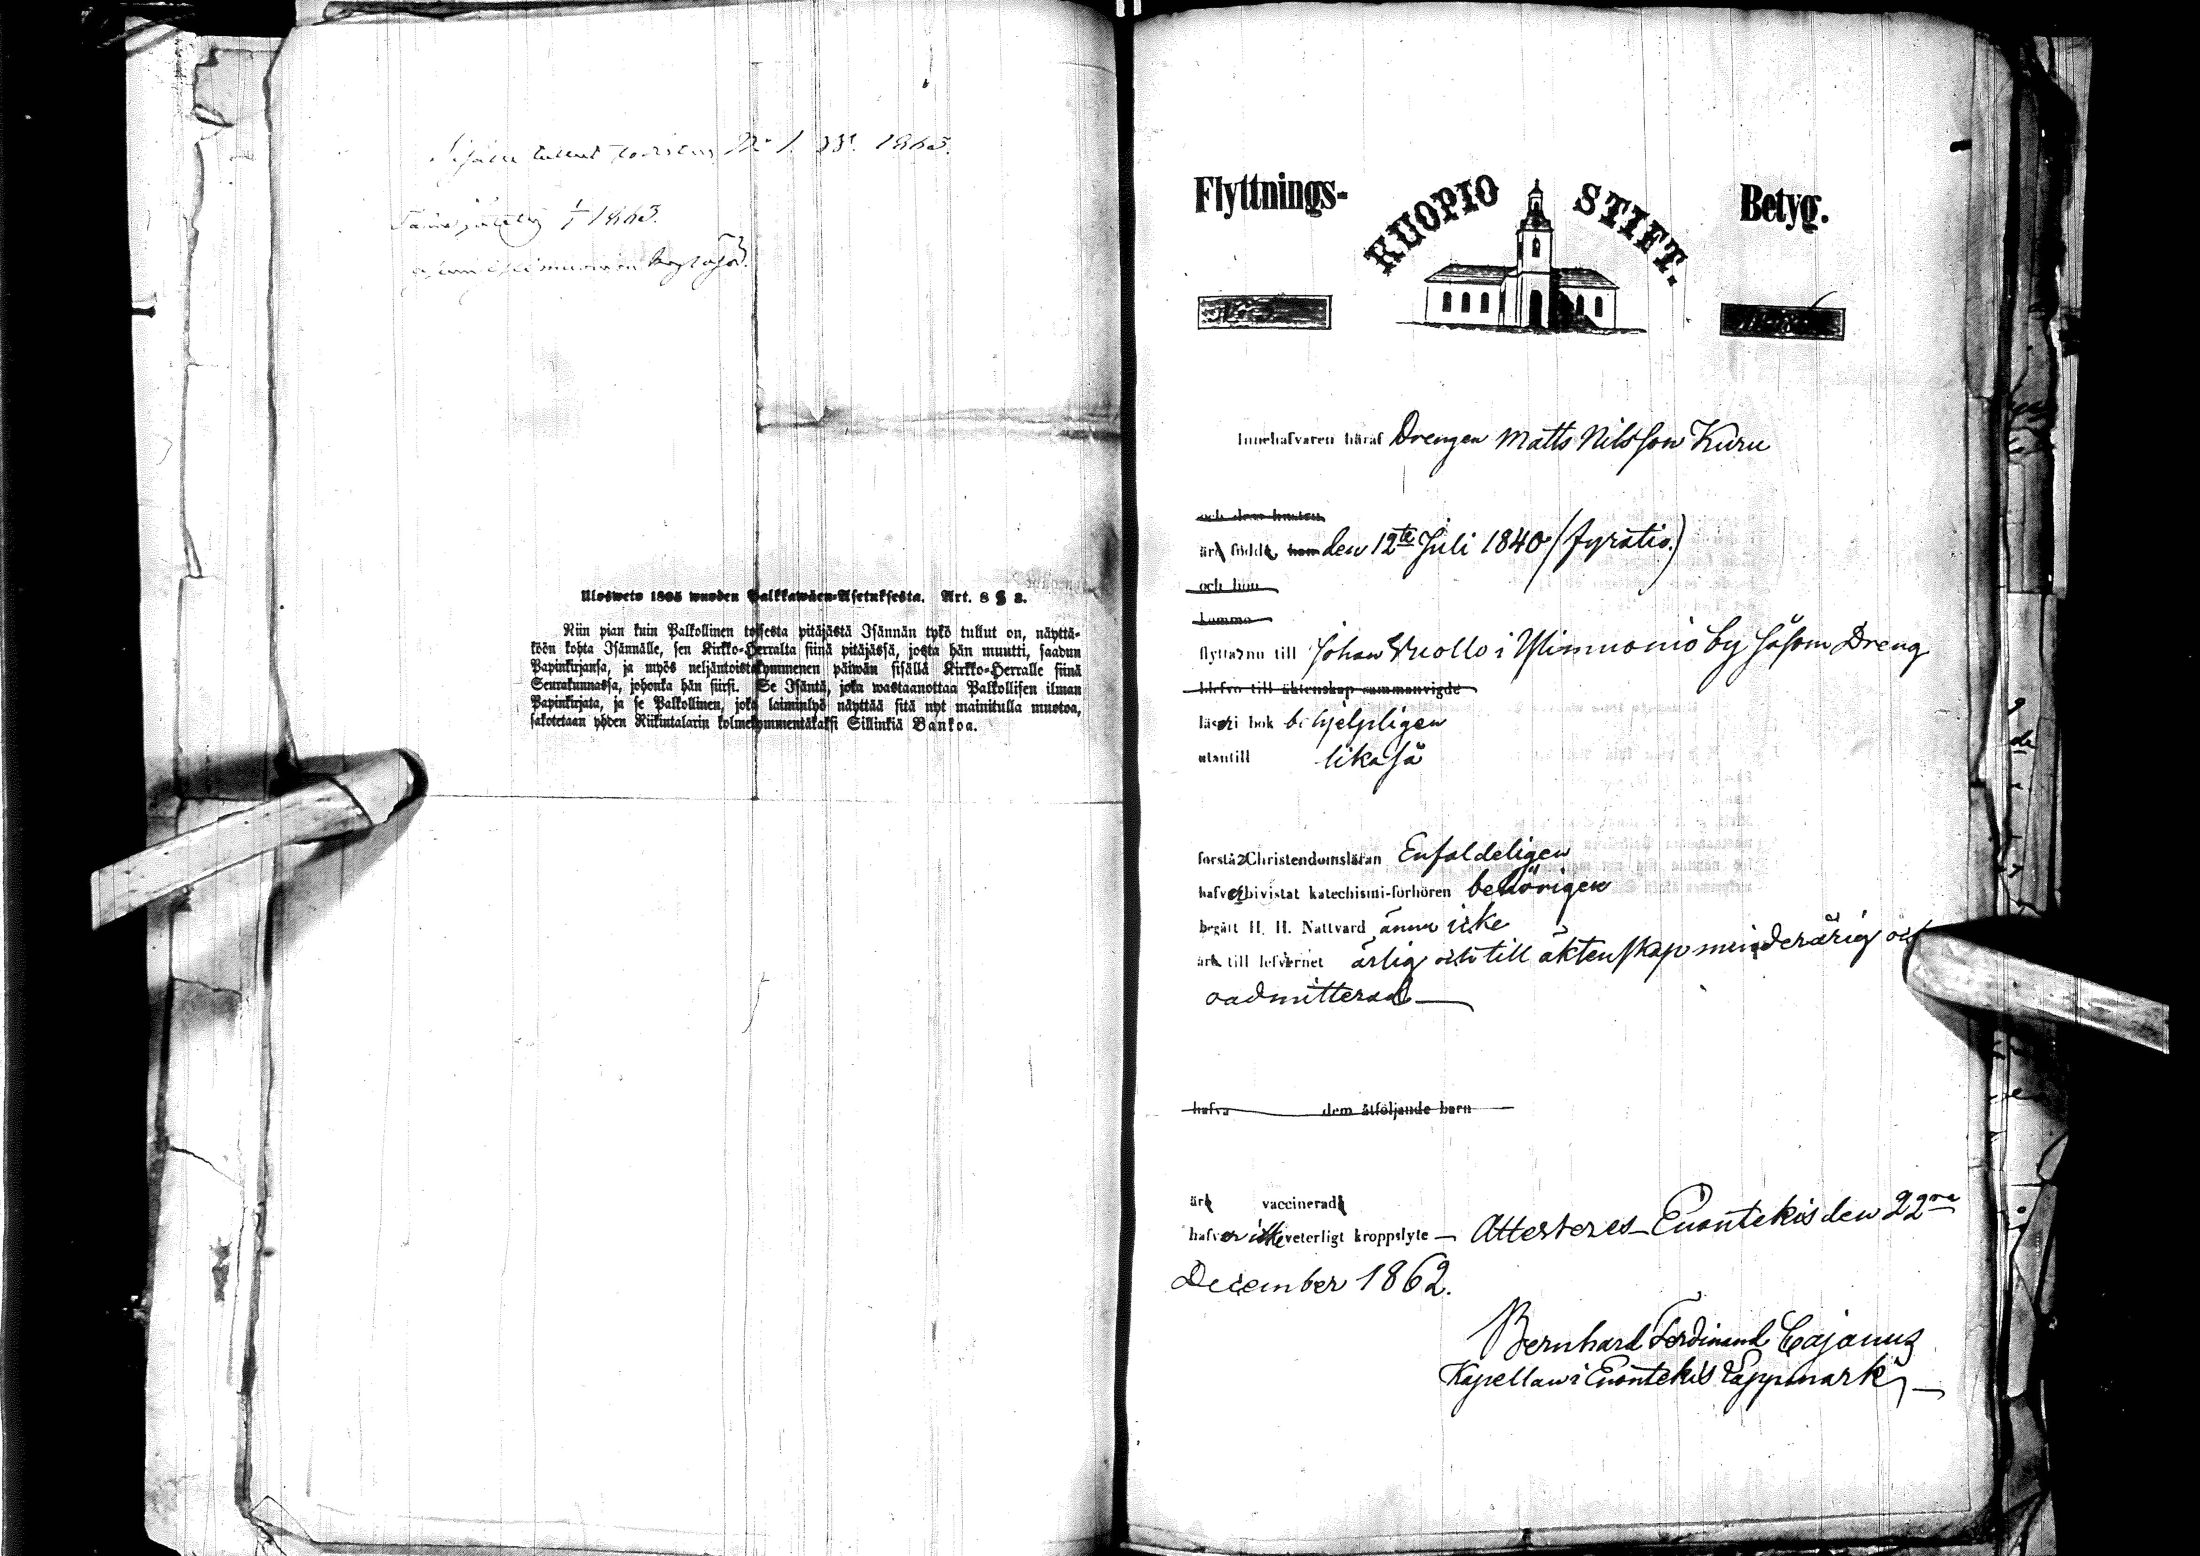 1863.
1863.
Ulosweto 1805 wuoden Palkkawäen-Asetuksesta. Art. 8 § 3.
Niin pian kuin Palkollinen toisesta pitäjästä Isännän tykö tullut on, näyttä-
köön kohta Isännälle, sen Kirkko-Herralta siinä pitäjässä, josta hän muutti, saadun
Papinkirjansa, ja myös neljäntoistakymmenen päiwän sisällä Kirkko-Herralle siinä
Seurakunnassa, johonka hän siirsi. Se Isäntä, joka wastaanottaa Palkollisen ilman
Papinkirjata, ja se Palkollinen, joka laiminlyö näyttää sitä nyt mainitulla muotoa,
sakotetaan yhden Riikintalarin kolmekymmentäkaksi Sillinkiä Bankoa.
Flyttnings- KUOPIO STIFT. Betyg.
Innehafvaren häraf Drengen Matts Nilsson Kuru
och dess hustru
är född den 12te Juli 1840 (fyratio.)
och hon
komma
flyttar nu till Johan Vuollo i Ylimuonio by såsom Dreng
blefvo till äktenskap sammanvigde
läser i bok behjelpligen
utantill likaså
förstår Christendomsläran Enfaldeligen
hafver bivistat katechismi-förhören behörigen
begått H. H. Nattvard ännu icke
är till lefvernet ärlig och till äktenskap minderårig och
oadmitterad
hafva dem åtföljande barn
är vaccinerad
hafver icke veterligt kroppslyte – Attesteres – Enontekis den 22ra
December 1862.
Bernhard Ferdinand Cajanus
Kapellan i Enontekis Lappmark